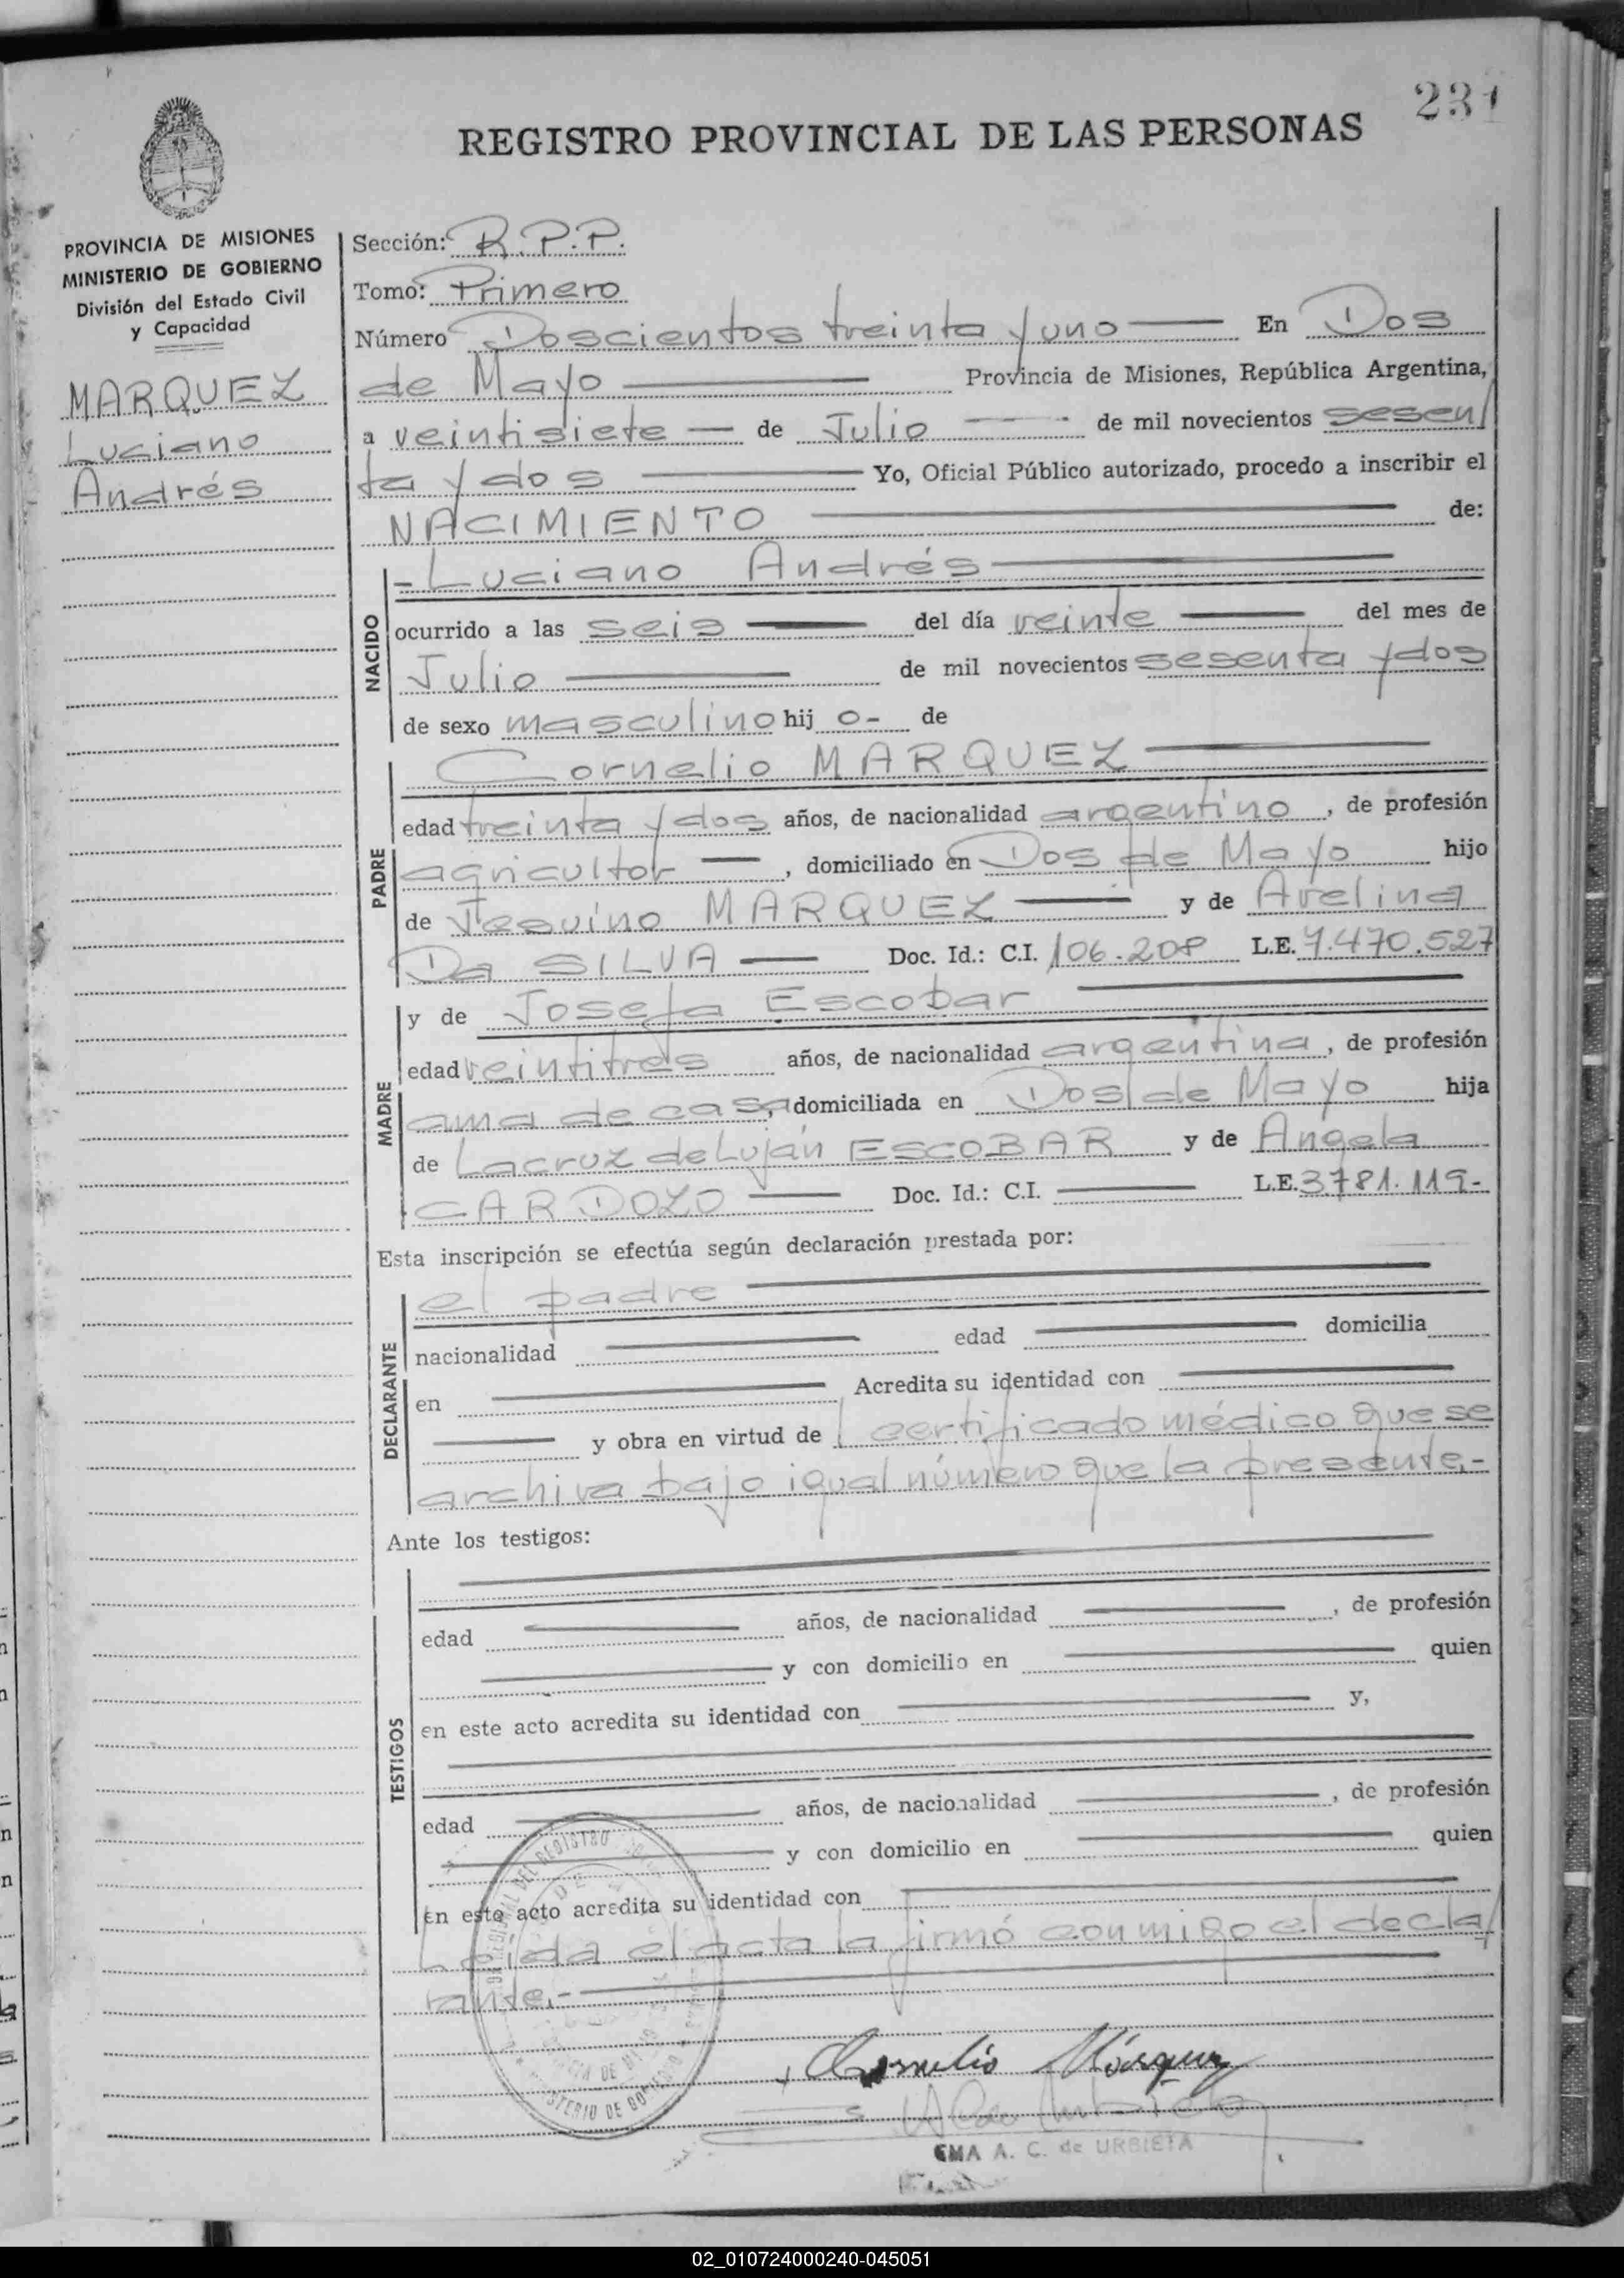 231
REGISTRO PROVINCIAL DE LAS PERSONAS
PROVINCIA DE MISIONES
MINISTERIO DE GOBIERNO
División del Estado Civil
y Capacidad
MARQUEZ
Luciano
Andrés
Sección: R.P.P.
Tomo: Primero
Número Doscientos treinta y uno En Dos
de Mayo Provincia de Misiones, República Argentina,
a veintisiete de Julio de mil novecientos sesen/
ta y dos Yo, Oficial Público autorizado, procedo a inscribir el
NACIMIENTO de:
NACIDO
-Luciano Andrés
ocurrido a las seis del día veinte del mes de
Julio de mil novecientos sesenta y dos
de sexo masculino hij o- de
PADRE
Cornelio MARQUEZ
edad treinta y dos años, de nacionalidad argentino, de profesión
agricultor, domiciliado en Dos de Mayo hijo
de MARQUEZ y de Avelina
Da SILVA Doc. Id.: C.I. 106.208 L.E. 7.470.527
MADRE
y de Josefa Escobar
edad veintitres años, de nacionalidad argentina, de profesión
ama de casa, domiciliada en Dos de Mayo hija
de Lacruz de Luján ESCOBAR y de Angela
CARDOZO Doc. Id.: C.I. L.E. 3781.119-
Esta inscripción se efectúa según declaración prestada por:
DECLARANTE
el padre
nacionalidad edad domicilia
en Acredita su identidad con
y obra en virtud de certificado médico que se
archiva bajo igual número que la presente.-
Ante los testigos:
TESTIGOS
edad años, de nacionalidad , de profesión
y con domicilio en quien
en este acto acredita su identidad con y,
edad años, de nacionalidad , de profesión
y con domicilio en quien
en este acto acredita su identidad con
Leida el acta la firmó conmigo el decla/
rante.-
DEL REGISTRO
MINISTERIO DE GOBIERNO
Cornelio Márquez
EMA A. C. de URBIETA
02_010724000240-045051